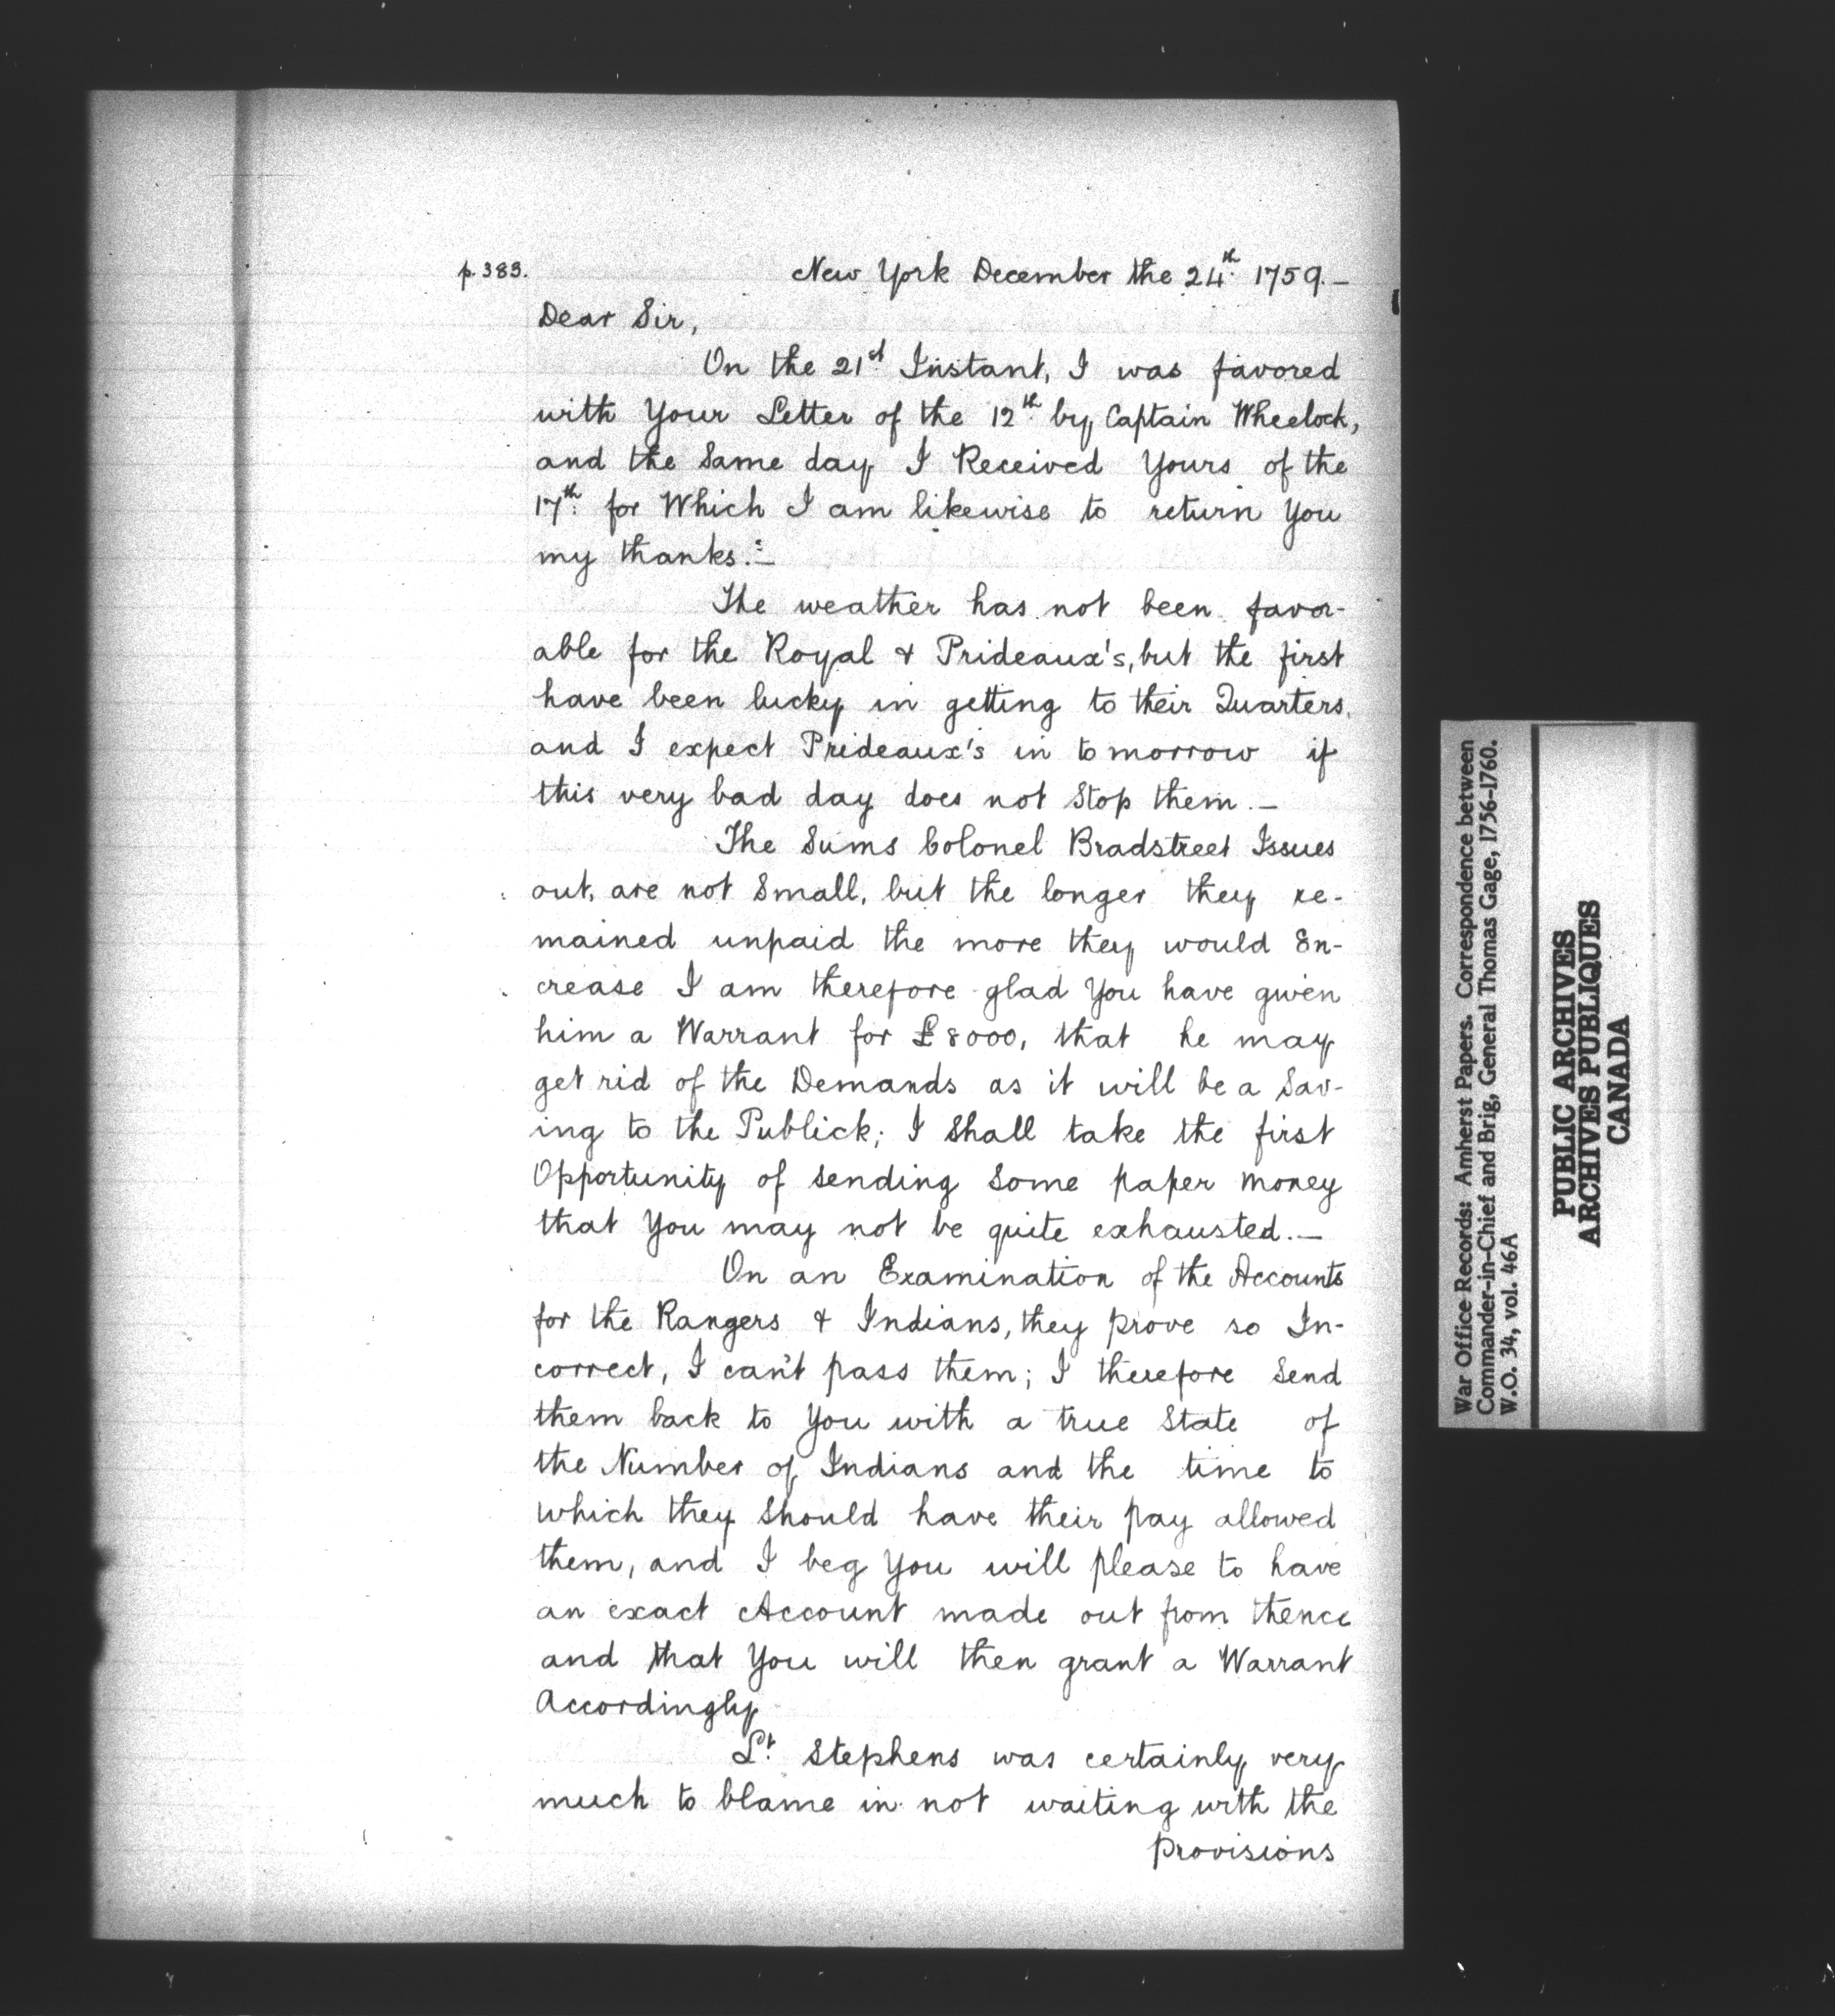 p. 383.
New York December the 24th. 1759.—
Dear Sir,
On the 21st. Instant, I was favored
with Your Letter of the 12th. by Captain Wheelock,
and the Same day I Received Yours of the
17th. for Which I am likewise to return You
my thanks.—
The weather has not been favor-
able for the Royal & Prideaux's, but the first
have been lucky in getting to their Quarters,
and I expect Prideaux's in tomorrow if
this very bad day does not Stop them.—
The Sums Colonel Bradstreet Issues
out, are not Small, but the longer they re-
mained unpaid the more they would En-
crease I am therefore glad You have given
him a Warrant for £8000, that he may
get rid of the Demands as it will be a Sav-
ing to the Publick; I Shall take the first
Opportunity of sending Some paper money
that You may not be quite exhausted.—
On an Examination of the Accounts
for the Rangers & Indians, they prove so In-
correct, I can't pass them; I therefore Send
them back to You with a true State of
the Number of Indians and the time to
which they Should have their pay allowed
them, and I beg You will please to have
an exact Account made out from thence
and that You will then grant a Warrant
Accordingly
Lt. Stephens was certainly very
much to blame in not waiting with the
Provisions
War Office Records: Amherst Papers. Correspondence between
Commander-in-Chief and Brig, General Thomas Gage, 1756-1760.
W.O. 34, vol. 46A
PUBLIC ARCHIVES
ARCHIVES PUBLIQUES
CANADA